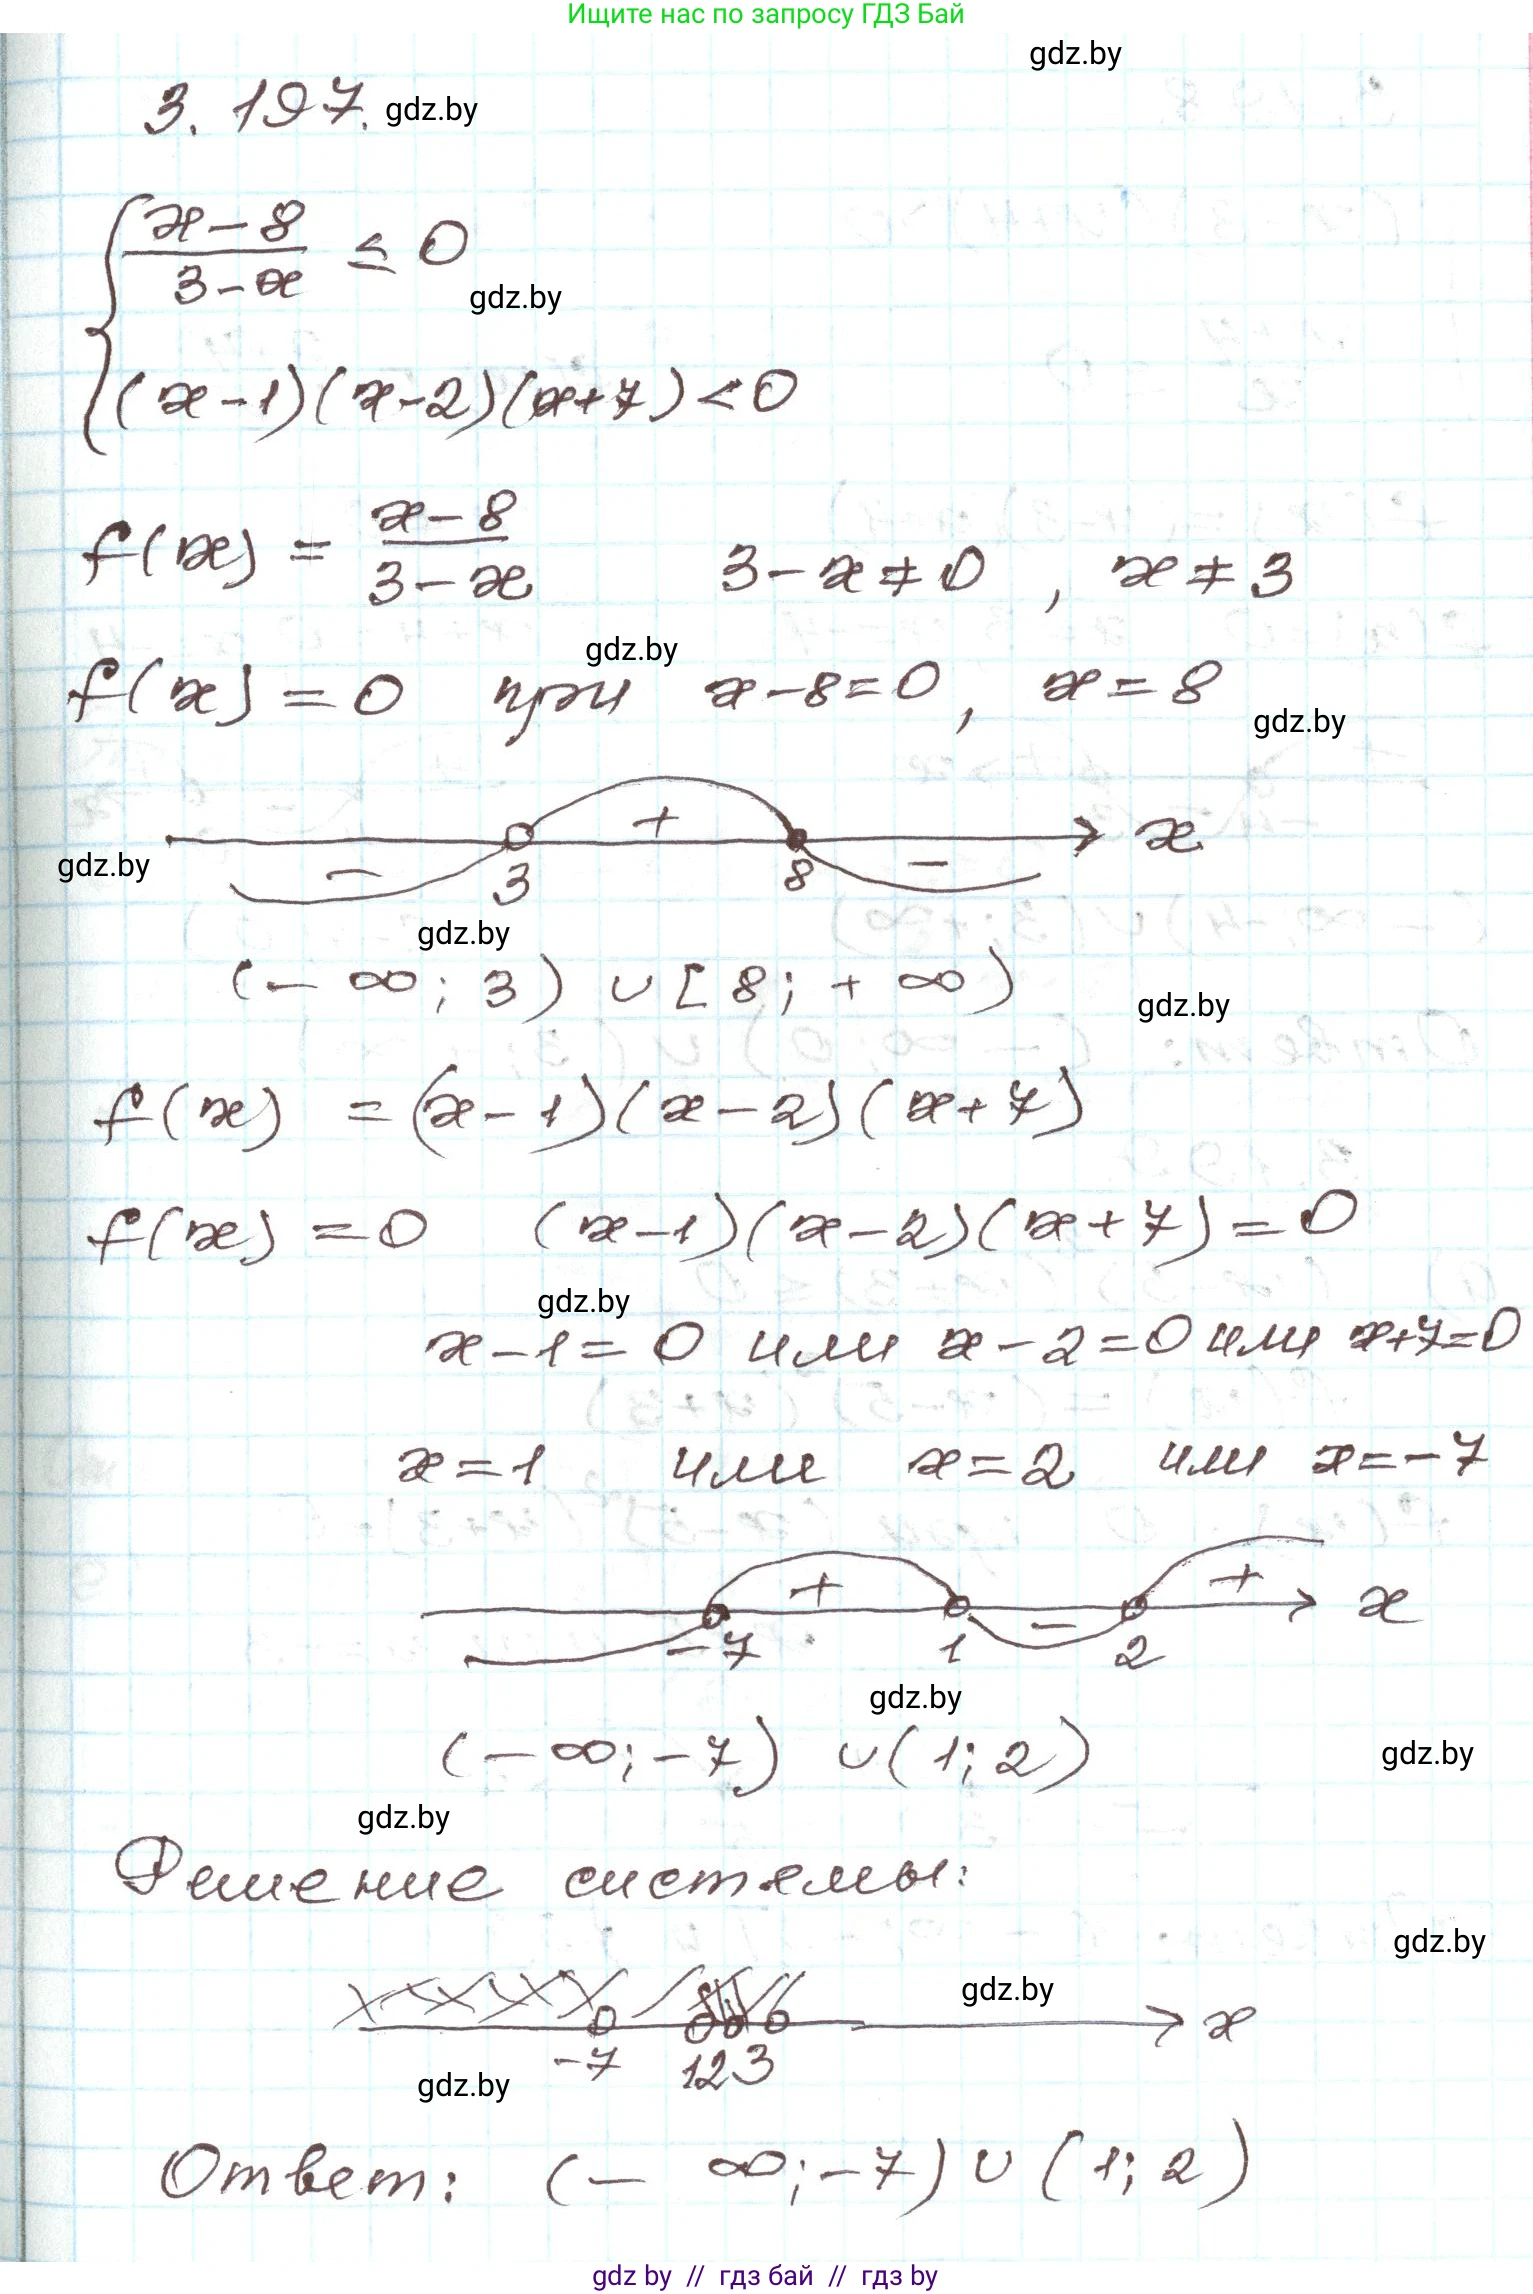 Ищите нас по запросу ГДЗ Бай
gdz.by
3.197. gdz.by
{ (x-8)/(3-x) ≤ 0
gdz.by
(x-1)(x-2)(x+7)<0
f(x) = (x-8)/(3-x)   3-x≠0, x≠3
gdz.by
f(x)=0 при x-8=0, x=8
gdz.by
+ x
gdz.by − 3 8 −
gdz.by
(-∞; 3) ∪ [8; +∞)
gdz.by
f(x) =(x-1)(x-2)(x+7)
f(x)=0 (x-1)(x-2)(x+7)=0
gdz.by
x-1=0 или x-2=0 или x+7=0
x=1 или x=2 или x=-7
+ − + x
-7 1 2
gdz.by
(-∞; -7) ∪ (1; 2)
gdz.by
gdz.by
Решение системы:
gdz.by
gdz.by
x
-7 1 2 3
gdz.by
Ответ: (-∞; -7) ∪ (1; 2)
gdz.by // гдз бай // гдз by